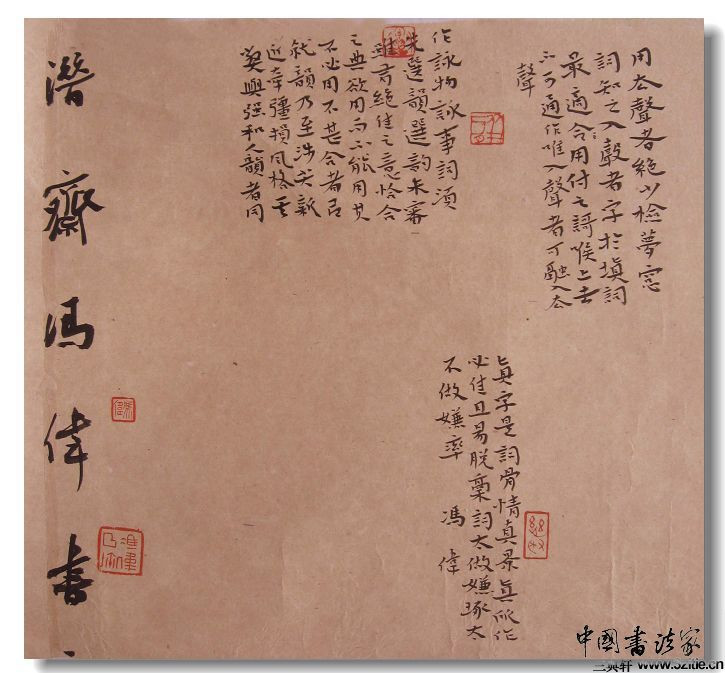 用厺聲者絕少檢夢窗
詞知之入聲者字於填詞
最適合用付之謌喉上去
不可通作唯入聲者可融入厺
聲
作詠物詠事詞須
先選韻選韵未審
雖有絕佳之意恰合
之典欲用而不能用其
不必用不甚合者以
就韻乃至涉尖新
近牽彊損風格其
弊與强和人韻者同
真字是詞骨情真景真所作
必佳且易脫稾詞太做嫌琢太
不做嫌率 馮偉
潛齋馮偉書
中國書法家
三典轩 www.52itie.cn